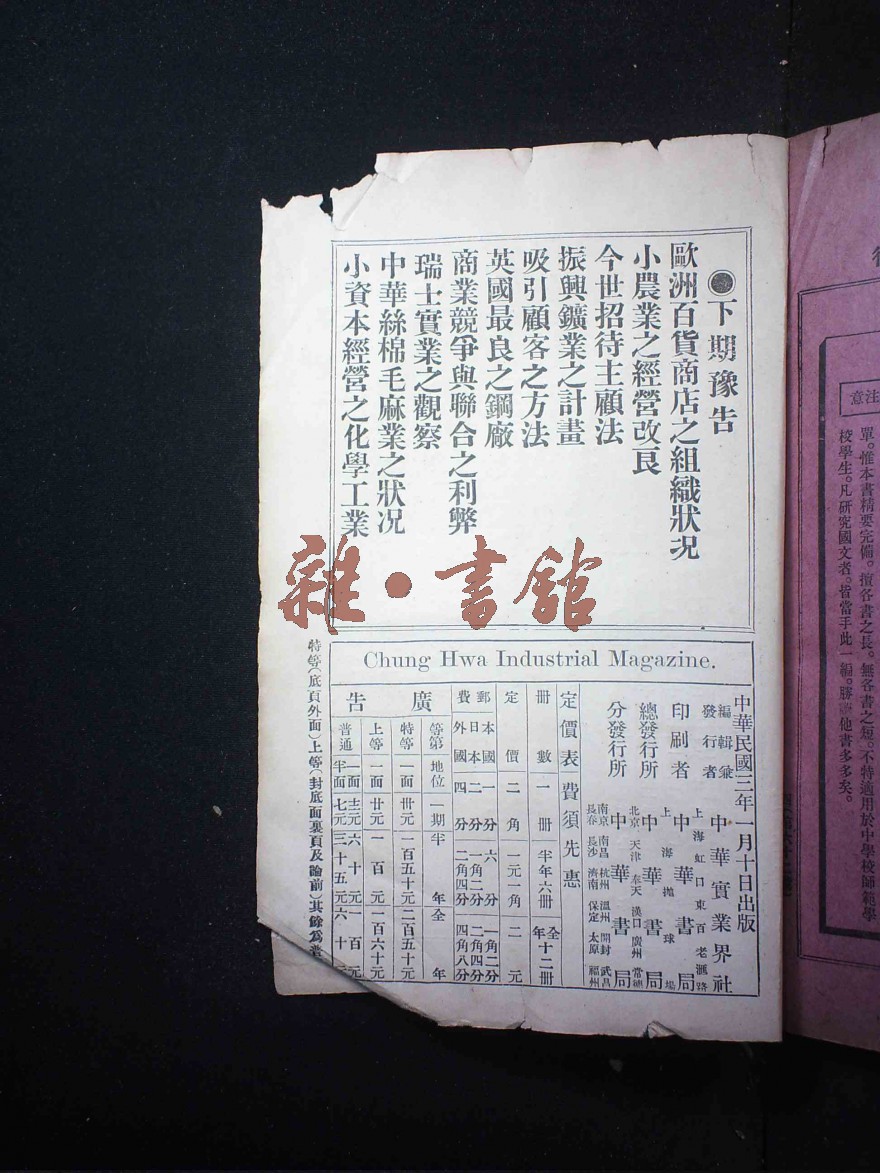 ◉下期豫告
歐洲百貨商店之組織狀况
小農業之經營改良
今世招待主顧法
振興鑛業之計畫
吸引顧客之方法
英國最良之鋼廠
商業競爭與聯合之利弊
瑞士實業之觀察
中華絲棉毛麻業之狀况
小資本經營之化學工業
雜·書館
Chung Hwa Industrial Magazine.
中華民國三年一月十日出版
編輯兼發行者 中華實業界社
上海虹口東百老滙路
印刷者 中華書局
上海抛球塲
總發行所 中華書局
北京 天津 奉天 漢口 廣州 常德
分發行所 中華書局
南京 南昌 杭州 溫州 開封 武昌
長春 長沙 濟南 保定 太原 福州
定價表 費須先惠
冊數 一冊 半年六冊 全年十二冊
定價 二角 一元一角 二元
郵費 本國 一分 六分 一角二分
日本 二分 一角二分 二角四分
外國 四分 二角四分 四角八分
廣告
等第 地位 一期 半年 全年
特等 一面 卅元 一百五十元 二百五十元
上等 一面 廿元 一百元 一百六十元
普通 一面 十二元 六十元 一百元
半面 七元 三十五元 六十元
特等(底頁外面)上等(封底面裏頁及論前)其餘爲普
注意
單。惟本書精要完備。擅各書之長。無各書之短。不特適用於中學校師範學
校學生。凡研究國文者。皆當手此一編。勝他書多多矣。